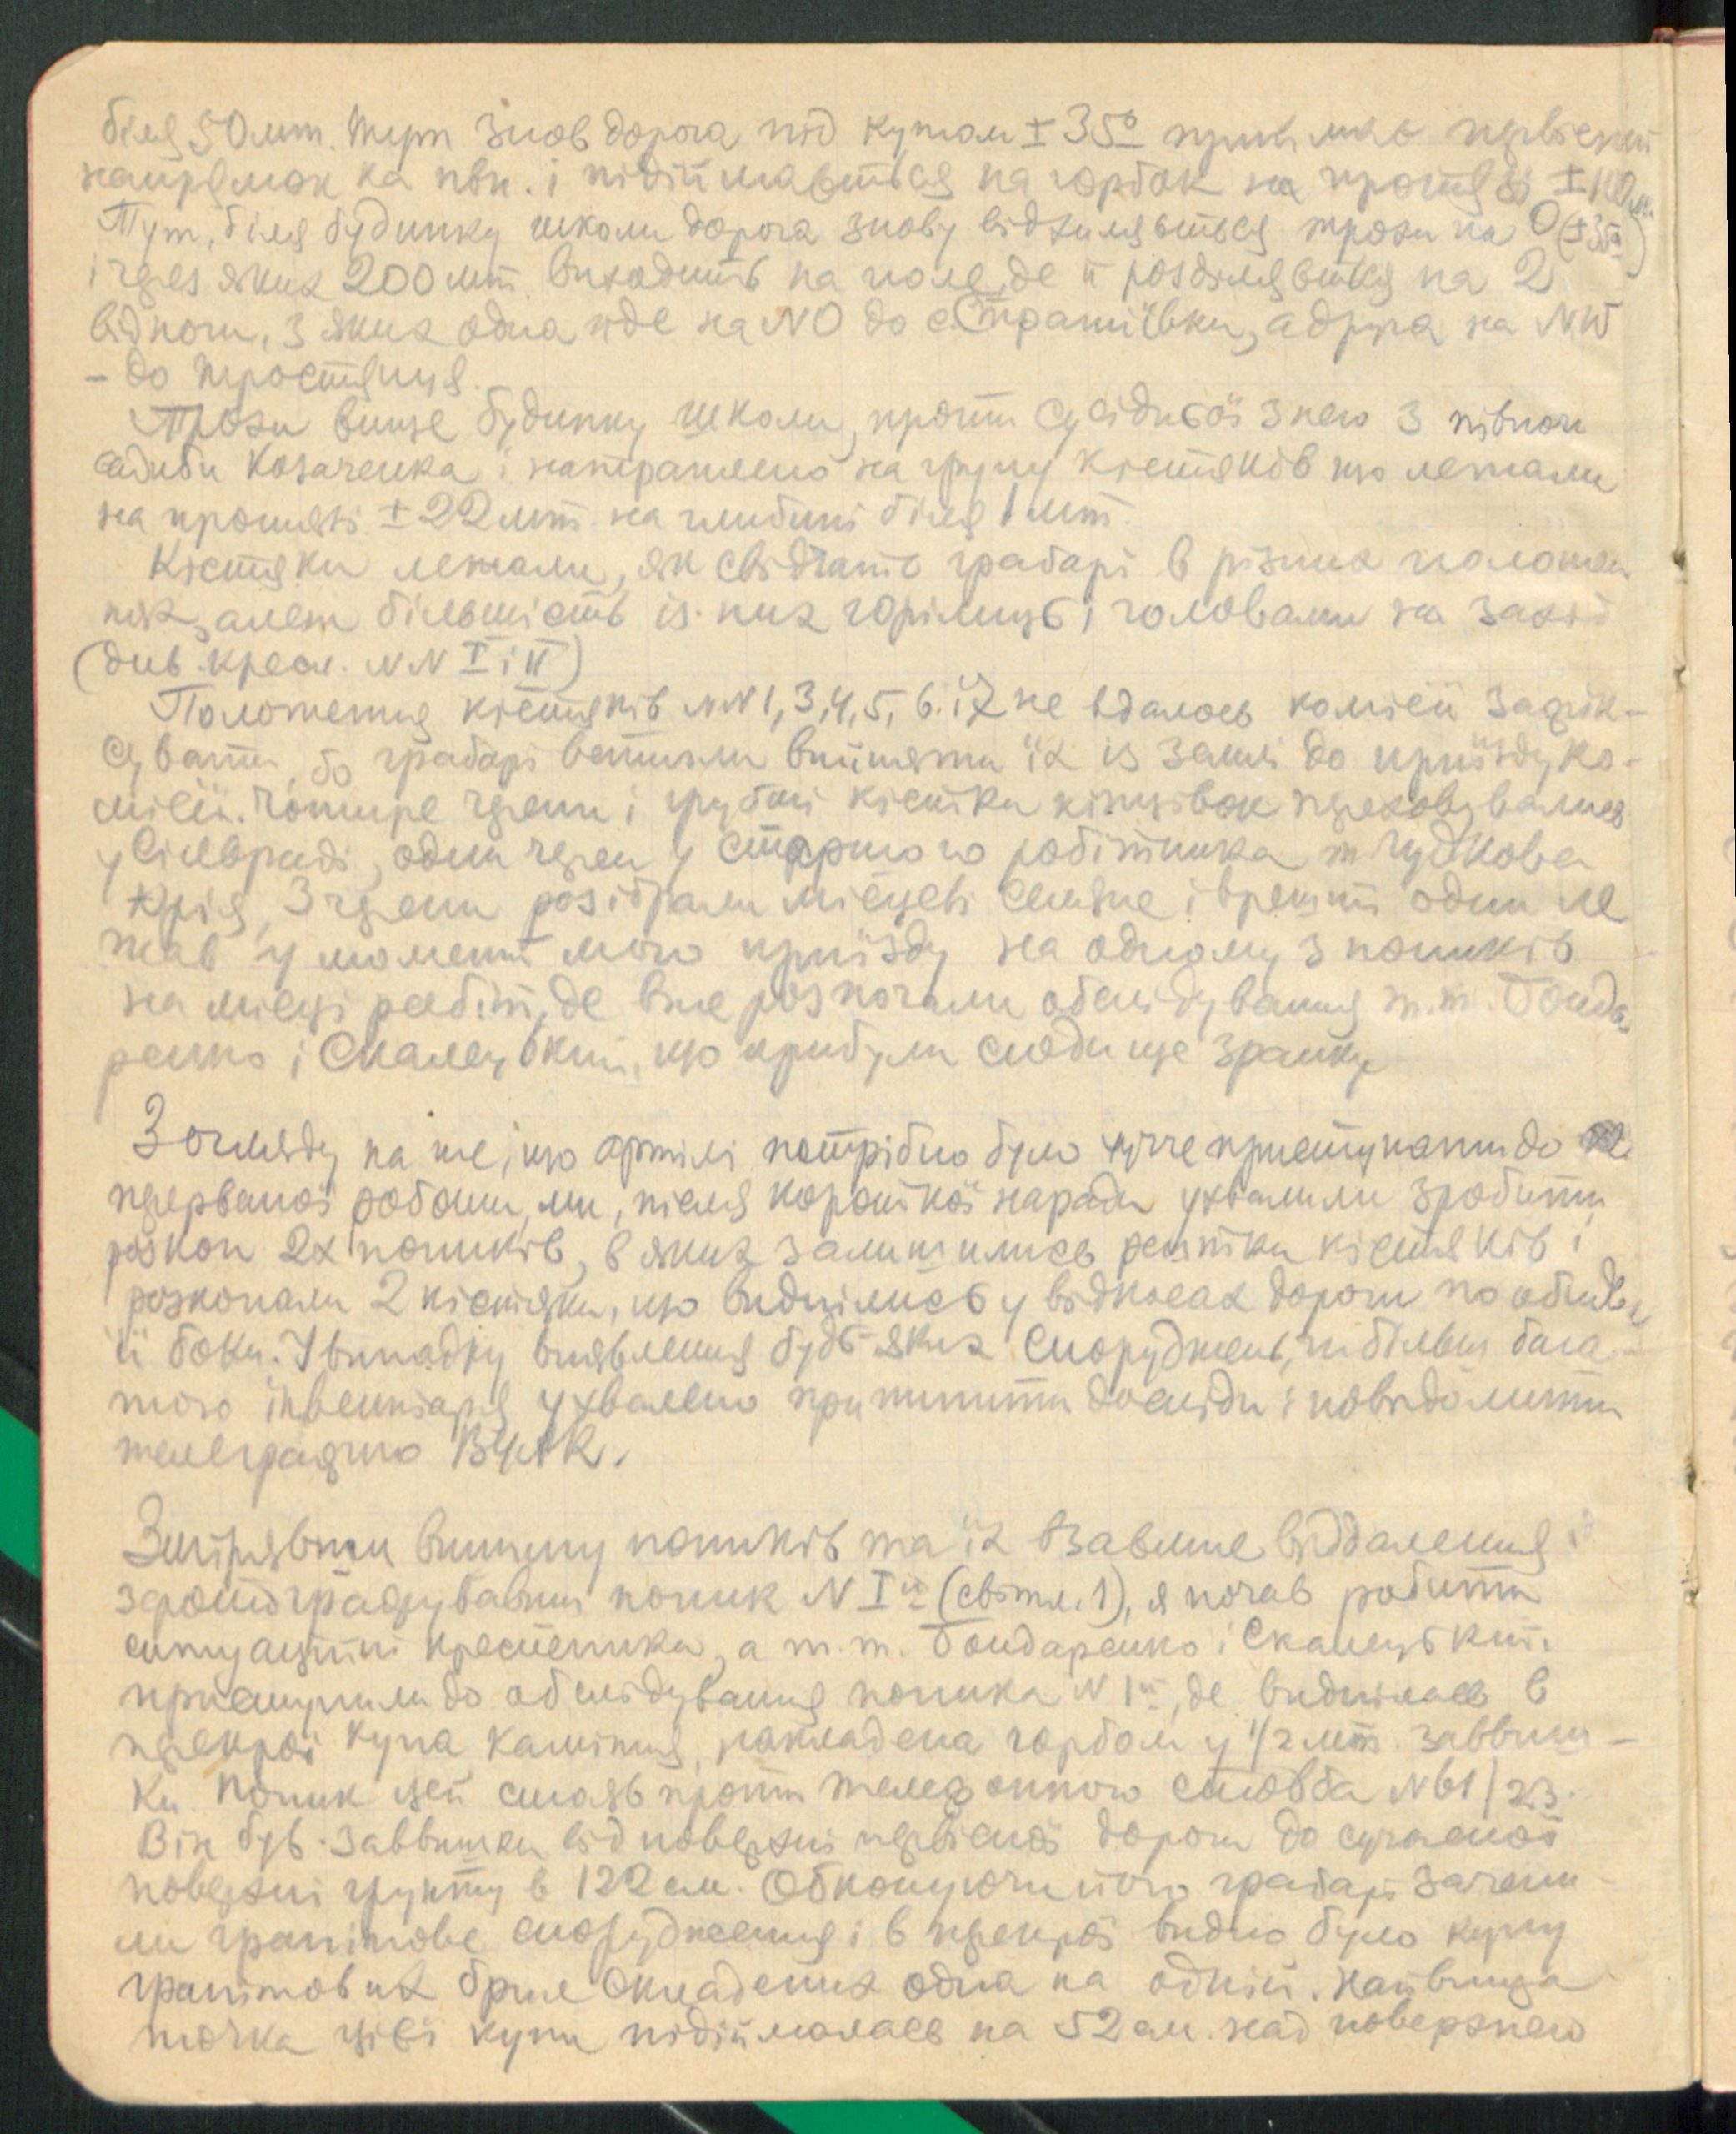 біля 50 мт. Тут знов дорога під кутом ± 35° приймає первісний
напрямок на пвн. і підіймається на горбок на протязі ±
Тут, біля будинку школи дорога знову відхиляється трохи на О
і через яких 200 мт. виходить на поле, де й розділяється на 2
відноги, з яких одна йде на NO до с. Стратіївки, а друга на NW
– до Тростянця.
Трохи вище будинку школи, проти сусідньої з нею з півночи
садиби Козаченка і натраплено на групу кістяків що лежали
на протязі ± 22 мт. на глибині біля 1 мт.
Кістяки лежали, як свідчать грабарі в різних положен
нях, але більшість із них горілиць і головами на захід
(див. кресл. NN I і II)
Положення кістяків NN 1, 3, 4, 5, 6 і 7 не вдалось комісії зафік-
сувати, бо грабарі встигли вийняти їх із землі до приїзду ко-
місії. Чотире черепи і грубші кістки кінцівок переховувались
у Сільраді, один череп у старшого робітника т. Чудкова
Крія, 3 черепи розібрали місцеві селяне і врешті один ле
жав у момент мого приїзду на одному з попиків
на місці робіт, де вже розпочали обслідування т.т. Бонда
ренко і Скалецький, що прибули сюди ще зранку
З огляду на те, що артілі потрібно було хутче приступати до
перерваної роботи, ми, після короткої наради ухвалили зробити
розкоп 2х попиків, в яких залишились рештки кістяків і
розкопати 2 кістяки, що виднілись у відкосах дороги по обидва
її боки. У випадку виявлення будь-яких споруджень, чи більш бага-
того інвентаря ухвалено припинити досліди і повідомити
телеграфно ВУАК.
Змірявши вишину попиків та їх взаємне віддалення і
зфотографувавши попик N I й (світл. 1), я почав робити
ситуаційні креслення, а т.т. Бондаренко і Скалецький
приступили до обслідування попика N 1й, де виднілась в
перекрої купа каміння, накладена горбом у 1/2 мт. заввиш-
ки. Попик цей стояв проти телефонного стовба N 61/23.
Він був заввишки від поверхні первісної дороги до сучасної
поверхні грунту в 122 см. Обкопуючи його грабарі зачепи-
ли гранітове спорудження і в перекрої видно було купу
гранітових брил складених одна на одній. Найвища
точка цієї купи підіймалась на 52 см. над поверхнею